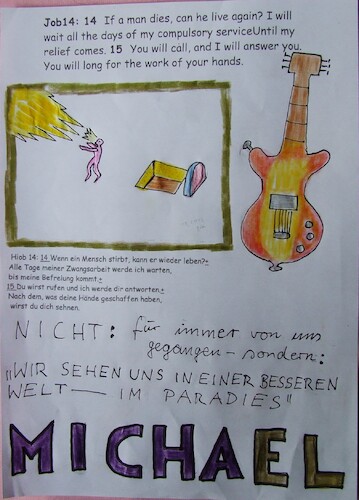 Job14: 14 If a man dies, can he live again? I will
wait all the days of my compulsory serviceUntil my
relief comes. 15 You will call, and I will answer you.
You will long for the work of your hands.
Hiob 14: 14 Wenn ein Mensch stirbt, kann er wieder leben?+
Alle Tage meiner Zwangsarbeit werde ich warten,
bis meine Befreiung kommt.+
15 Du wirst rufen und ich werde dir antworten.+
Nach dem, was deine Hände geschaffen haben,
wirst du dich sehnen.
NICHT: für immer von uns
gegangen – sondern:
„WIR SEHEN UNS IN EINER BESSEREN
WELT — IM PARADIES"
MICHAEL